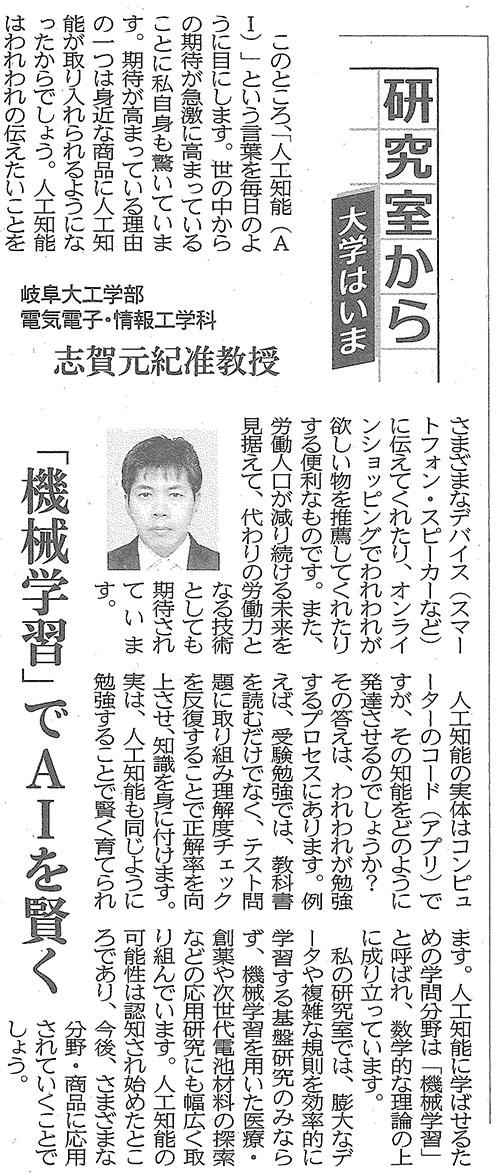 研究室から
大学はいま
このところ、「人工知能（A
I）」という言葉を毎日のよ
うに目にします。世の中から
の期待が急激に高まっている
ことに私自身も驚いていま
す。期待が高まっている理由
の一つは身近な商品に人工知
能が取り入れられるようにな
ったからでしょう。人工知能
はわれわれの伝えたいことを
岐阜大工学部
電気電子・情報工学科
志賀元紀准教授
「機械学習」でAIを賢く
さまざまなデバイス（スマー
トフォン・スピーカーなど）
に伝えてくれたり、オンライ
ンショッピングでわれわれが
欲しい物を推薦してくれたり
する便利なものです。また、
労働人口が減り続ける未来を
見据えて、代わりの労働力と
なる技術
としても
期待され
ていま
す。
人工知能の実体はコンピュ
ーターのコード（アプリ）で
すが、その知能をどのように
発達させるのでしょうか？
その答えは、われわれが勉強
するプロセスにあります。例
えば、受験勉強では、教科書
を読むだけでなく、テスト問
題に取り組み理解度チェック
を反復することで正解率を向
上させ、知識を身に付けます。
実は、人工知能も同じように
勉強することで賢く育てられ
ます。人工知能に学ばせるた
めの学問分野は「機械学習」
と呼ばれ、数学的な理論の上
に成り立っています。
私の研究室では、膨大なデ
ータや複雑な規則を効率的に
学習する基盤研究のみなら
ず、機械学習を用いた医療・
創薬や次世代電池材料の探索
などの応用研究にも幅広く取
り組んでいます。人工知能の
可能性は認知され始めたとこ
ろであり、今後、さまざまな
分野・商品に応用
されていくことで
しょう。